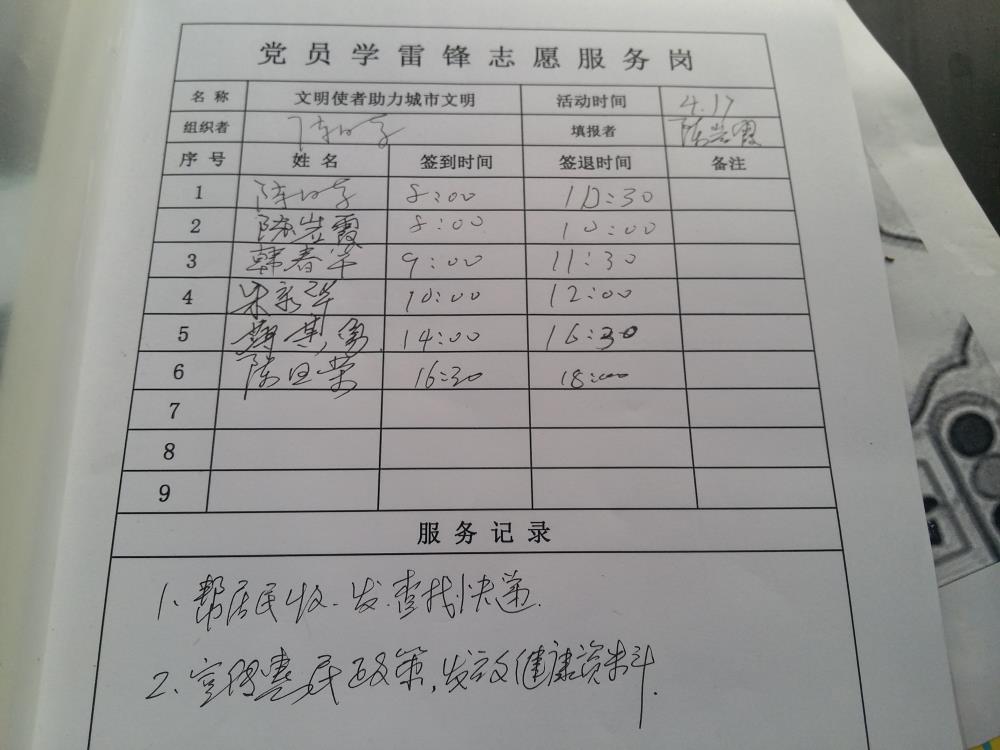 党员学雷锋志愿服务岗
名称 文明使者助力城市文明 活动时间 4.17
组织者 填报者 陈岩霞
序号 姓名 签到时间 签退时间 备注
1 8:00 10:30
2 陈岩霞 8:00 10:00
3 韩春华 9:00 11:30
4 朱新华 10:00 12:00
5 14:00 16:30
6 陈卫荣 16:30 18:00
7
8
9
服务记录
1、帮居民收、发、查找快递.
2、宣传惠民政策,发放健康资料.